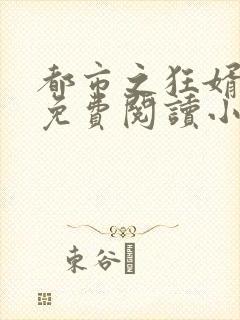 都市之狂婿
免費閱讀小
東谷